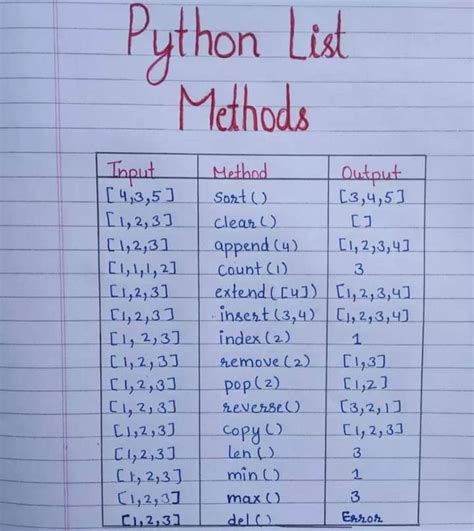 Python List
Methods
Input Method Output
[4,3,5] sort() [3,4,5]
[1,2,3] clear() []
[1,2,3] append(4) [1,2,3,4]
[1,1,1,2] count(1) 3
[1,2,3] extend([4]) [1,2,3,4]
[1,2,3] insert(3,4) [1,2,3,4]
[1,2,3] index(2) 1
[1,2,3] remove(2) [1,3]
[1,2,3] pop(2) [1,2]
[1,2,3] reverse() [3,2,1]
[1,2,3] copy() [1,2,3]
[1,2,3] len() 3
[1,2,3] min() 1
[1,2,3] max() 3
[1,2,3] del() Error